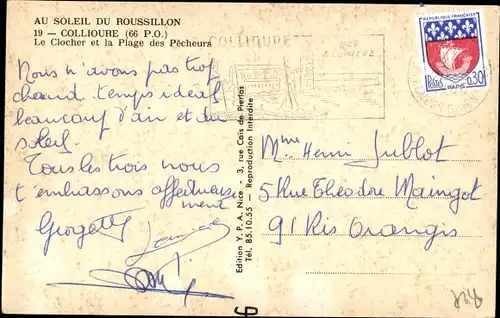 AU SOLEIL DU ROUSSILLON
19 — COLLIOURE (66 P.O.)
Le Clocher et la Plage des Pêcheurs
COLLIOURE
RÉPUBLIQUE FRANÇAISE
Postes 0,30
PARIS
Nous n'avons pas trop
chaud temps idéal
beaucoup d'air et du
soleil.
Tous les trois nous
t'embrassons affectueuse
ment
Georgette
Edition Y. P. A. Nice - 3, rue Cais de Pierlas
Tél. 85.10.55 - Reproduction Interdite
Mme Henri Jublot
5 Rue Théodore Maingot
91 Ris Orangis